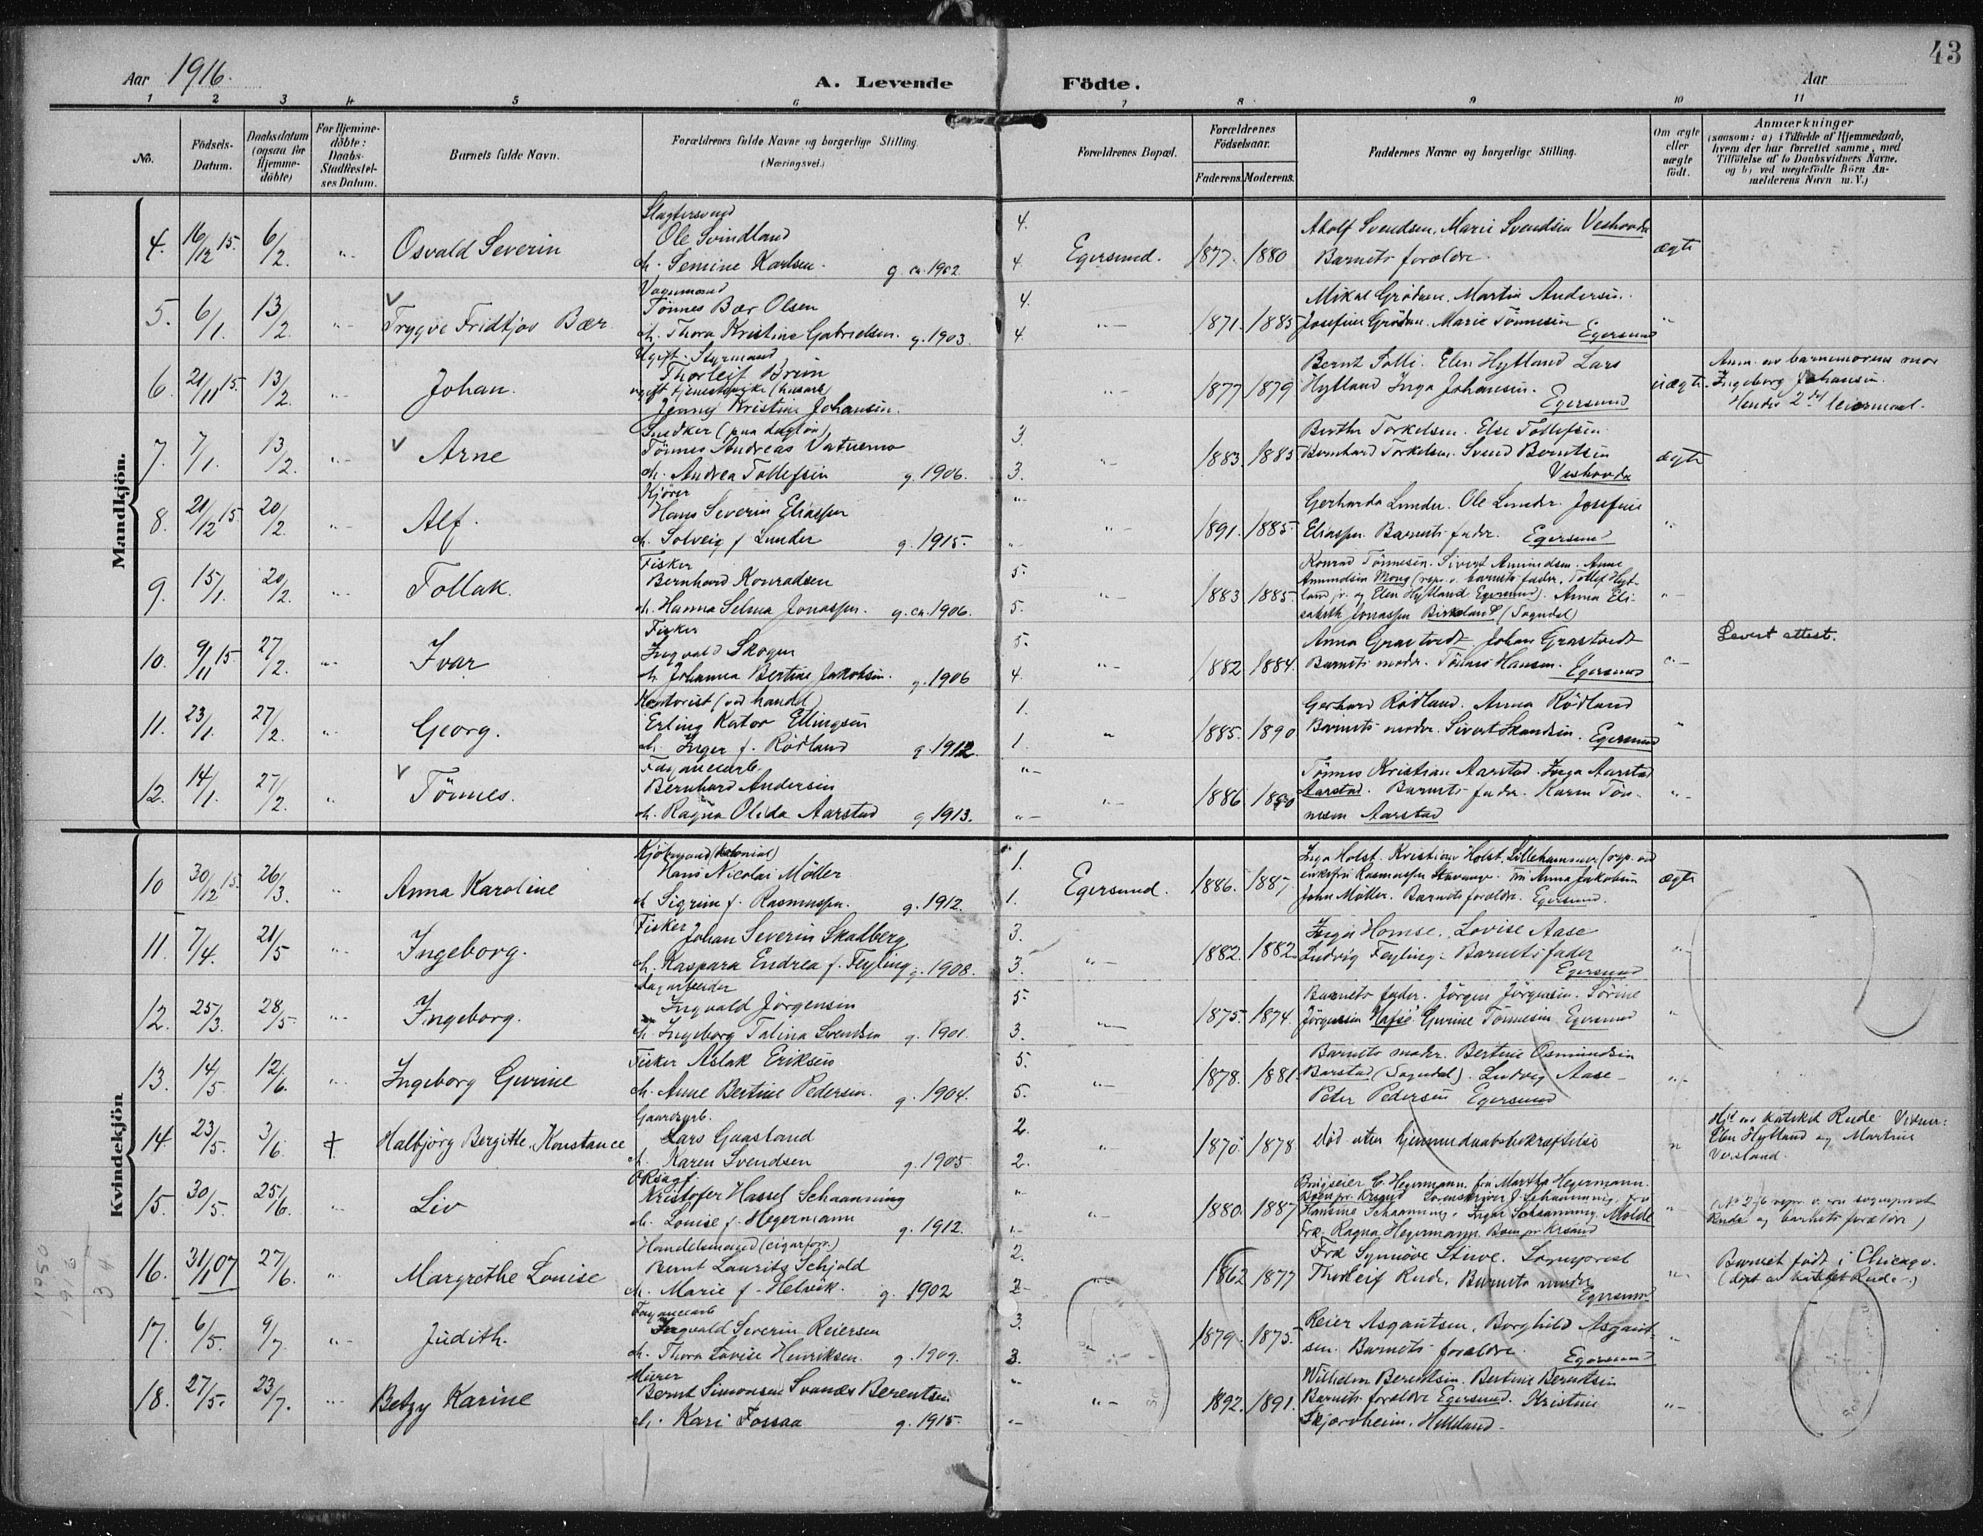 43
Aar 1916.
A. Levende Födte.
Aar
1 2 3 4 5 6 7 8 9 10 11
No.
Födsels-Datum.
Daabsdatum (ogsaa for Hjemme-döbte)
For Hjemme-döbte: Daabs-Stadfæstel-ses Datum.
Barnets fulde Navn.
Forældrenes fulde Navne og borgerlige Stilling. (Næringsvei.)
Forældrenes Bopæl.
Forældrenes Födselsaar.
Faderens. Moderens.
Faddernes Navne og borgerlige Stilling.
Om ægte eller uægte födt.
Anmærkninger
(saasom: a) i Tilfælde af Hjemmedaab, hvem der har forrettet samme, med Tilföielse af to Daabsvidners Navne. og b) ved uægtefödte Börn Anmelderens Navn m. V.)
Mandkjön.
4. 16/12 15. 6/2. "- Osvald Severin
Slagtersvend
Ole Svindland
h. Semine Karlsen. g. ca. 1902
4. 4 Egersund. 1877. 1880
Adolf Svendsen. Marie Svendsen
Barnets forældre. ægte
5. 6/1. 13/2. "- Trygve Fridtjov Bær
Tönnes Bær Olsen
h. Thora Kristine Gabrielsen. g. 1903.
4. 4 "- 1871. 1885
Mikal Grödem. Martin Andersen.
Josefine Grödem. Marie Tönnesen
Egersund "
6. 21/11 15. 13/2. "- Johan.
Ugift Styrmand
Thorleif Brun
Jenny Kristine Johansen.
"- 1877 1879
Bernt Tolli. Elen Hytland Lars
Hytland Inga Johansen.
Egersund uægte
Anm. av barnemorens mor
Ingeborg Johansen.
Hendes 2det leiermaal.
7. 7/1. 13/2. "- Arne
Snedker (paa daglön)
Tönnes Andreas Vatnemo
h. Andrea Tollefsen g. 1906.
3. 3. "- 1883. 1885
Berthe Torkelsen. Else Tollefsen.
Bernhard Torkelsen. Svend Berntsen
ægte
8. 21/12 15. 20/2. "- Alf.
Kjörer
Hans Severin Eliassen
h. Solveig f. Lunder g. 1915.
"- 1891. 1885.
Gerharda Lunder. Ole Lunder. Josefine
Eliassen. Barnets fader. Egersund "
9. 15/1. 20/2. "- Tollak.
Fisker
Bernhard Konradsen
h. Hanna Selma Jonassen. g. ca. 1906.
5. 5. "- 1883 1885.
Konrad Tönnesen. Sivert Amundsen. Anne
Amundsen Mong (repr. v. barnets fader. Tollef Hyt-
land jr. og Elen Hytland Egersund). Anna Eli-
sabeth Jonassen Birkeland (Sogndal) "-
10. 9/11 15 27/2. "- Ivar
Fisker
Ingvald Skogen
h. Johanna Bertine Jakobsen. g. 1906
5. 4. "- 1882 1884.
Anna Grastvedt Johan Grastvedt
Barnets moder. Tönnes Hansen. Egersund "-
Levert attest.
11. 23/1. 27/2. " Georg.
Kontorist (ved handel)
Erling Kator Ellingsen
h. Inger f. Rödland g. 1912.
1. 1. " 1885. 1890
Gerhard Rödland. Anna Rödland
Barnets moder. Sivert Skandsen. Egersund "
12. 14/1. 27/2. " Tönnes.
Fayancearb.
Bernhard Andersen
h. Ragna Olida Aarstad g. 1913.
"- "- 1886 1890
Tönnes Kristian Aarstad. Inga Aarstad
Aarstad. Barnets fader. Karen Tön-
nesen Aarstad "-
Kvindekjön
10 30/12 15. 26/3. " Anna Karoline
Kjöbmand (kolonial)
Hans Nicolai Möller
h. Sigrun f. Rasmussen. g. 1912.
1. 1. Egersund. 1886. 1887.
Inga Holst. Kristian Holst. Lillehammer (repr. ved
enkefru Rasmussen Stavanger. Fru Anna Jakobsen
John Möller. Barnets forældre. Egersund. ægte
11. 7/4. 21/5 "- Ingeborg.
Fisker
Johan Severin Skadberg
h. Kaspara Endrea f. Feyling g. 1908.
3. 3. "- 1882. 1882
Inga Homse. Lovise Aase
Ludvig Feyling. Barnets fader
Egersund "-
12. 25/3. 28/5. "- Ingeborg.
Ingvald Jörgensen
h. Ingeborg Talina Svendsen g. 1901.
5. 3. "- 1875. 1874.
Barnets fader. Jörgen Jörgensen. Sörine
Jörgensen Gurine Tönnesen Egersund "
13. 14/5 12/6. "- Ingeborg Gurine
Fisker Aslak Eriksen
h. Anne Bertine Pedersen. g. 1904.
5. 5. "- 1878. 1881.
Barnets moder. Bertine Osmundsen
Barstad (Sogndal). Ludvig Aase-
Peter Pedersen Egersund "-
14. 23/5. 3/6. † Halbjörg Bergitte Konstance
Gaardarb.
Lars Gaasland
h. Karen Svendsen g. 1905
2. 2. "- 1870. 1878.
Död uten hjemmedaabsbekræftelse "
Hj.d. av katekt Rude. Vidner:
Elen Hytland og Martine
Vesland.
15. 30/5. 25/6. "- Liv
O.R.sagf.
Kristofer Hassel Schaanning
h. Louise f. Hegermann g. 1912.
"- "- 1880. 1887
Brugseier C. Hegermann. fru Martha Hegermann.
Hansine Schaanning. Inger Schaanning. Molde
Frk. Ragna Hegermann. Boen pr. Krsand "
16. 31/1 07 27/6. " Margrethe Louise
Handelsmand (cigarforr.)
Bernt Lauritz Schjold
h. Marie f. Helvik. g. 1902
2. 2. "- 1862 1877
Frk Synnöve Stuve. Sogneprest
Thorleif Rude. Barnets moder
Egersund "-
Barnet födt i Chicago.
(döpt av katekt Rude.)
17. 6/5 9/7. "- Judith.
Fayancearb
Ingvald Severin Reiersen
h. Thora Lovise Henriksen. g. 1909.
3. 3. " 1879. 1875.
Reier Asgautsen, Borghild Asgaut-
sen. Barnets forældre.
Egersund "
18. 27/5. 23/7. "- Betzy Karine
Murer
Bernt Simonsen Svanæs Berentsen
h. Kari Fossaa g. 1915.
"- "- 1892. 1891.
Wilhelm Berentsen. Bertine Berentsen
Barnets forældre Egersund. Kristine
Skjærvheim. Helleland. "-